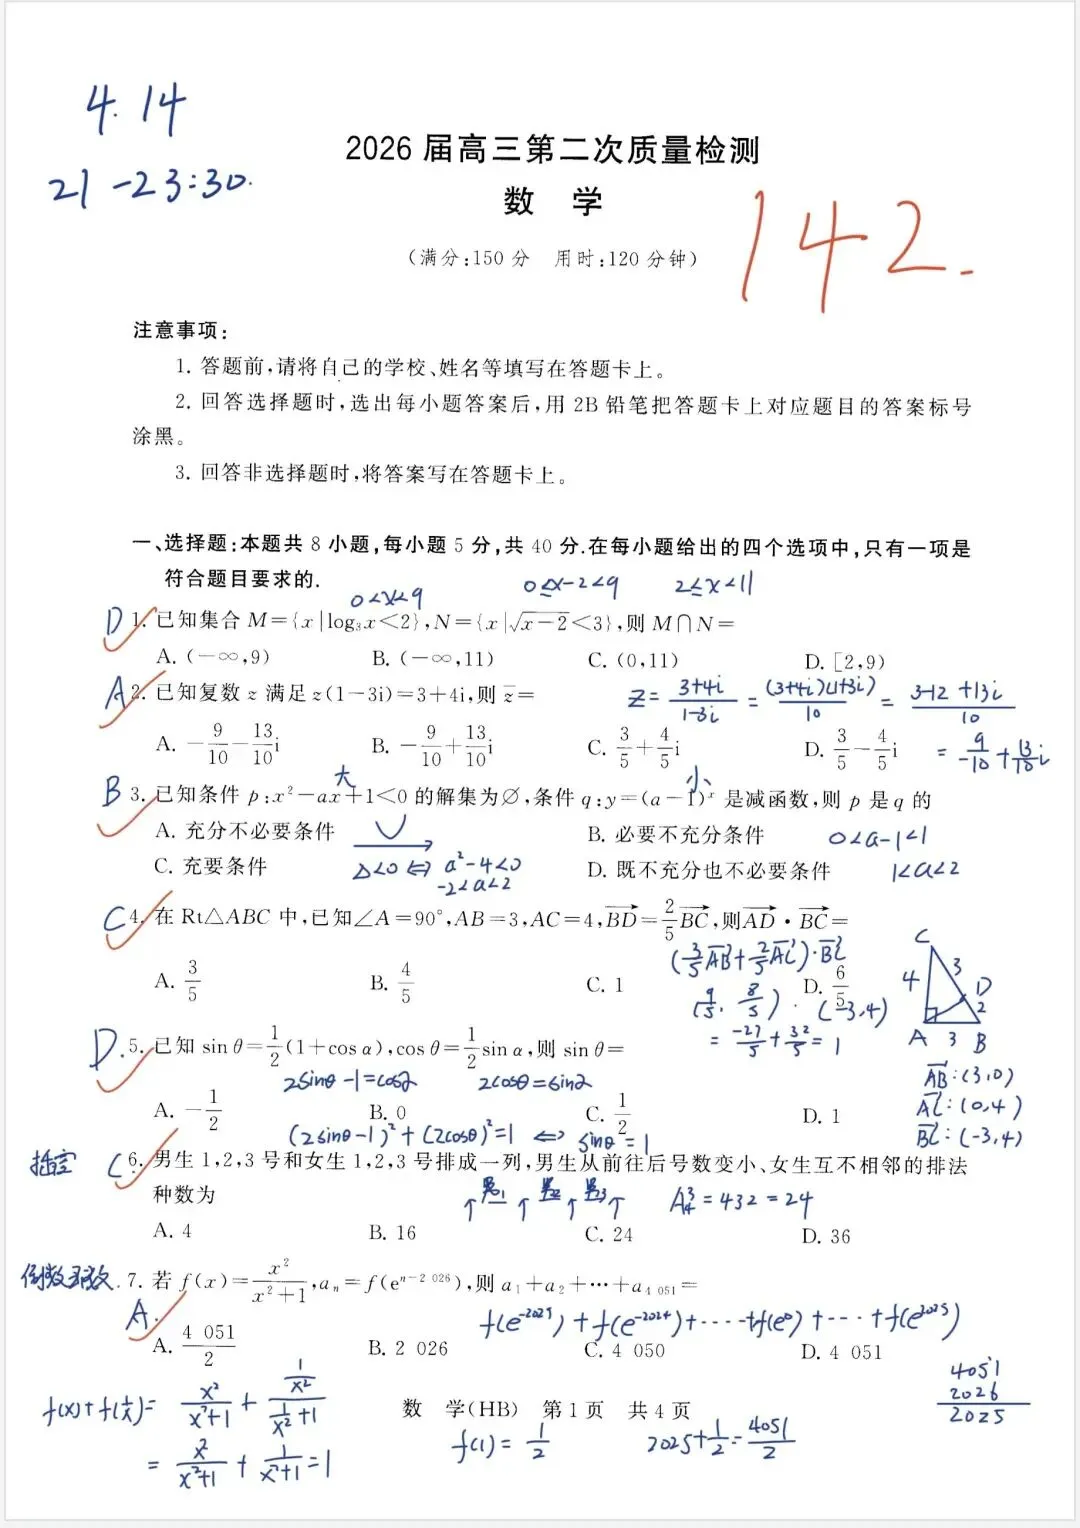 4.14
21-23:30.
2026届高三第二次质量检测
数 学
142.
(满分:150分 用时:120分钟)
注意事项:
1. 答题前,请将自己的学校、姓名等填写在答题卡上。
2. 回答选择题时,选出每小题答案后,用2B铅笔把答题卡上对应题目的答案标号
涂黑。
3. 回答非选择题时,将答案写在答题卡上。
一、选择题:本题共8小题,每小题5分,共40分.在每小题给出的四个选项中,只有一项是
符合题目要求的.
0<x<9 0≤x-2<9 2≤x<11
D 1. 已知集合M={x|log₃x<2},N={x|√(x-2)<3},则M∩N=
A. (-∞,9) B. (-∞,11) C. (0,11) D. [2,9)
A 2. 已知复数z满足z(1-3i)=3+4i,则z̅=
z=(3+4i)/(1-3i)=(3+4i)(1+3i)/10=(3-12+13i)/10
A. -9/10-13/10i B. -9/10+13/10i C. 3/5+4/5i D. 3/5-4/5i
=9/-10+13/10i
大 小
B 3. 已知条件p:x²-ax+1<0的解集为∅,条件q:y=(a-1)ˣ是减函数,则p是q的
A. 充分不必要条件 B. 必要不充分条件 0<a-1<1
C. 充要条件 D. 既不充分也不必要条件 1<a<2
Δ<0⇔a²-4<0
-2<a<2
C 4. 在Rt△ABC中,已知∠A=90°,AB=3,AC=4,BD→=2/5BC→,则AD→·BC→=
(3/5AB→+2/5AC→)·BC→
A. 3/5 B. 4/5 C. 1 D. 6/5
(9/5,8/5)·(-3,4)
=-27/5+32/5=1
C 4 3 D 2 A 3 B
AB→:(3,0)
AC→:(0,4)
BC→:(-3,4)
D. 5. 已知sin θ=1/2(1+cos α),cos θ=1/2sin α,则sin θ=
2sinθ-1=cosα 2cosθ=sinα
A. -1/2 B. 0 C. 1/2 D. 1
(2sinθ-1)²+(2cosθ)²=1⇔sinθ=1
插空 C 6. 男生1,2,3号和女生1,2,3号排成一列,男生从前往后号数变小、女生互不相邻的排法
种数为
↑男1↑男2↑男3↑ A₄³=432=24
A. 4 B. 16 C. 24 D. 36
倒数函数. 7. 若f(x)=x²/(x²+1),aₙ=f(eⁿ⁻² ⁰²⁶),则a₁+a₂+⋯+a₄ ₀₅₁=
A.
f(e⁻²⁰²⁵)+f(e⁻²⁰²⁴)+⋯⋯+f(e⁰)+⋯+f(e²⁰²⁵)
A. 4 051/2 B. 2 026 C. 4 050 D. 4 051
4051
2026
2025
f(x)+f(1/x)=x²/(x²+1)+(1/x²)/(1/x²+1)
=x²/(x²+1)+1/(x²+1)=1
数 学(HB) 第1页 共4页
f(1)=1/2 2025+1/2=4051/2